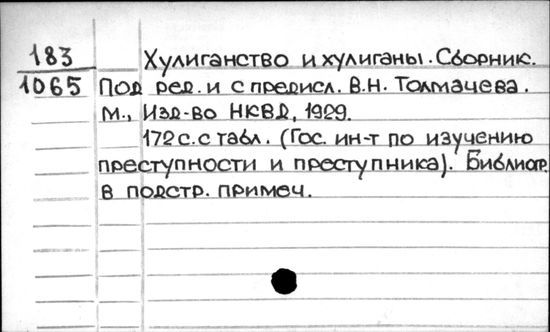 183 Хулиганство и хулиганы. Сборник.
1065 Под ред. и с предисл. В.Н. Толмачева.
М., Изд-во НКВД, 1929.
172 с. с табл. (Гос. ин-т по изучению
преступности и преступника). Библиогр.
в подстр. примеч.